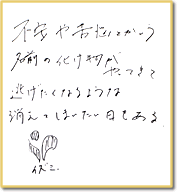 不安や苦悩とかいう
名前の化け物が
やってきて
逃げたくなるような
消えてしまいたい日もある
イズミ.